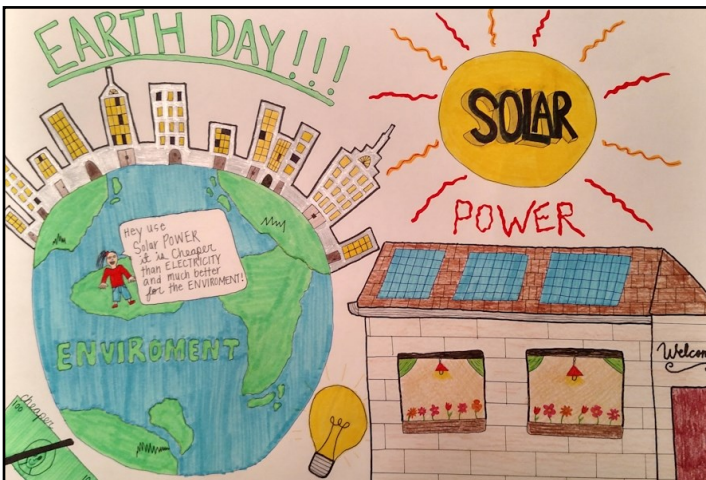 EARTH DAY!!!
SOLAR
POWER
Hey use
Solar POWER
it is Cheaper
than ELECTRICITY
and much better
for the ENVIROMENT!
ENVIROMENT
Welcom
cheaper
100
10